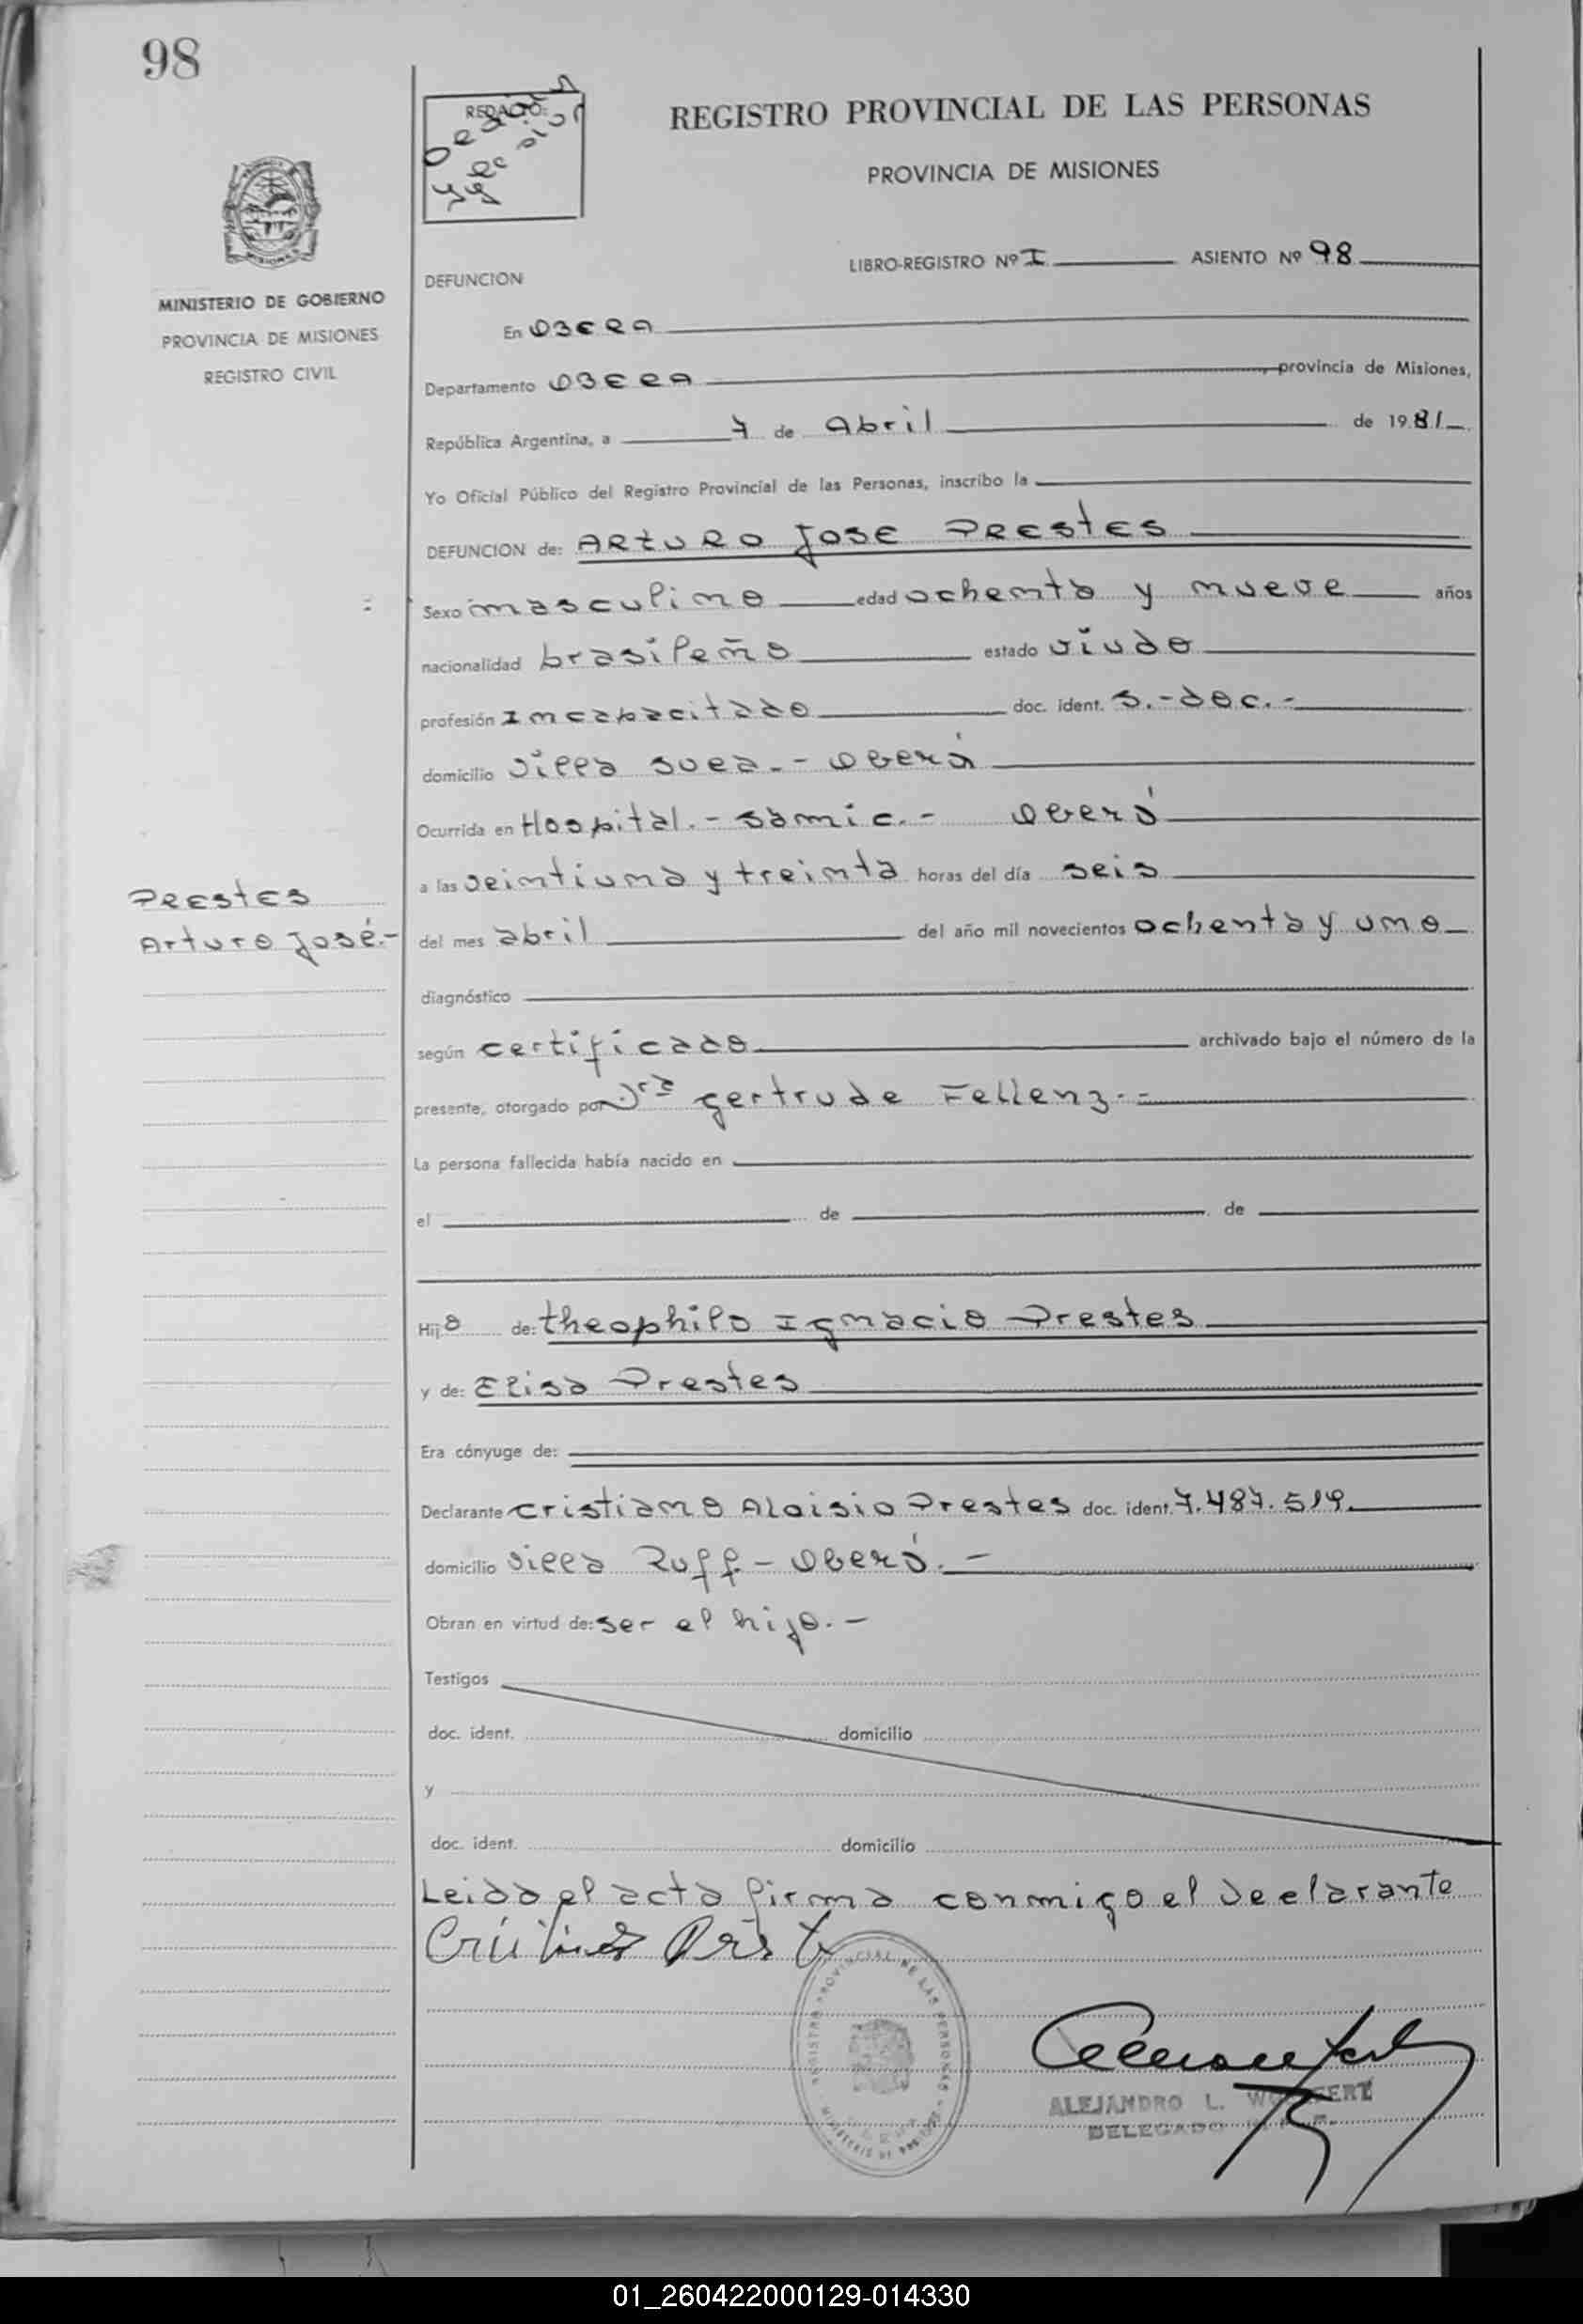 98
REDACTO:
REGISTRO PROVINCIAL DE LAS PERSONAS
PROVINCIA DE MISIONES
LIBRO-REGISTRO Nº I ASIENTO Nº 98
DEFUNCION
MINISTERIO DE GOBIERNO
PROVINCIA DE MISIONES
REGISTRO CIVIL
En OBERA
Departamento OBERA, provincia de Misiones,
República Argentina, a 7 de Abril de 1981
Yo Oficial Público del Registro Provincial de las Personas, inscribo la
DEFUNCION de: ARTURO JOSE PRESTES
Sexo masculino edad ochenta y nueve años
nacionalidad brasileño estado viudo
profesión Incapacitado doc. ident. S.-doc.-
domicilio Villa Suea.- Oberá
Ocurrida en Hospital.- Samic.- Oberá
a las veintiuna y treinta horas del día seis
Prestes
Arturo José.-
del mes abril del año mil novecientos ochenta y uno
diagnóstico
según certificado archivado bajo el número de la
presente, otorgado por Dra Gertrude Fellenz.-
La persona fallecida había nacido en
el de de
Hijo de: Theophilo Ignacio Prestes
y de: Elisa Prestes
Era cónyuge de:
Declarante Cristiano Aloisio Prestes doc. ident. 7.487.519.
domicilio Villa Ruff - Oberá.-
Obran en virtud de: ser el hijo.-
Testigos
doc. ident. domicilio
y
doc. ident. domicilio
Leida el acta firma conmigo el declarante
REGISTRO PROVINCIAL DE LAS PERSONAS
ALEJANDRO L.
DELEGADO
01_260422000129-014330